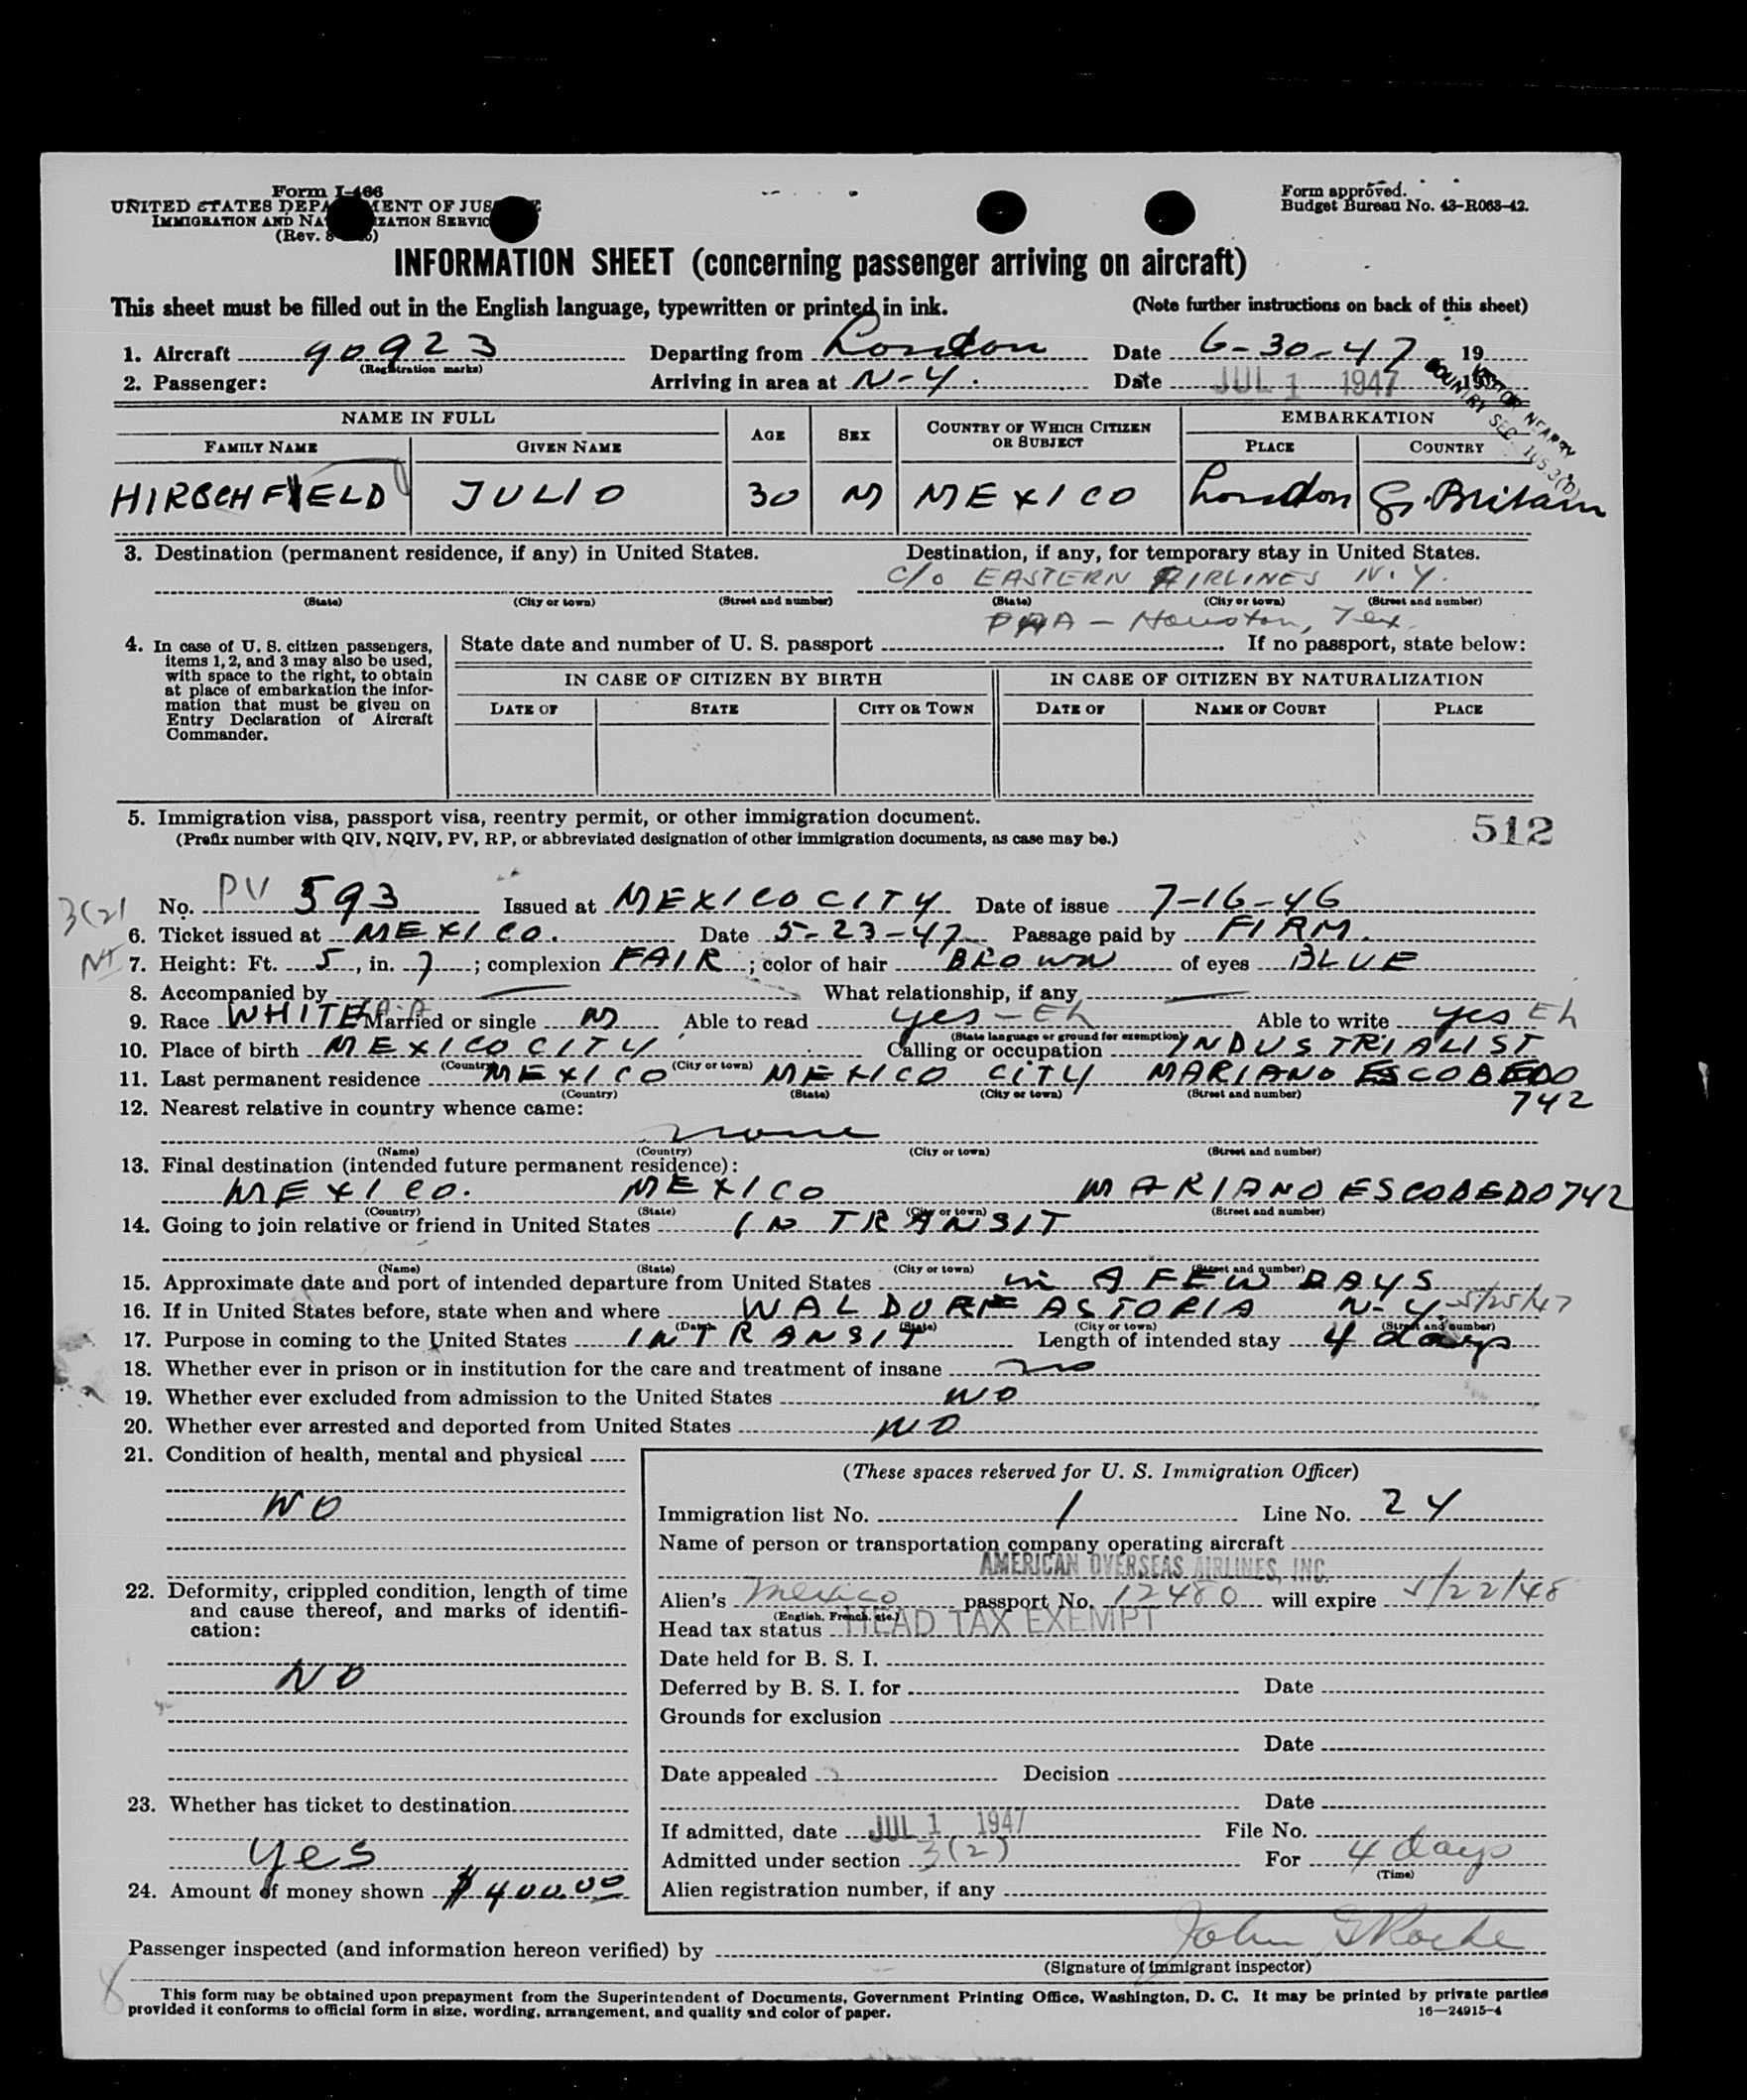 Form I-466
UNITED STATES DEPARTMENT OF JUSTICE
IMMIGRATION AND NATURALIZATION SERVICE
(Rev.
Form approved.
Budget Bureau No. 43-R068-42.
INFORMATION SHEET (concerning passenger arriving on aircraft)
This sheet must be filled out in the English language, typewritten or printed in ink. (Note further instructions on back of this sheet)
1. Aircraft 90923 Departing from London Date 6-30-47 19
(Registration marks)
2. Passenger: Arriving in area at N-Y. Date JUL 1 1947 19
COUNTRY SEC. 105.3(b)
NAME IN FULL AGE SEX COUNTRY OF WHICH CITIZEN OR SUBJECT EMBARKATION
FAMILY NAME GIVEN NAME PLACE COUNTRY
HIRSCHFIELD JULIO 30 M MEXICO London G. Britain
3. Destination (permanent residence, if any) in United States. Destination, if any, for temporary stay in United States.
c/o EASTERN AIRLINES N.Y.
(State) (City or town) (Street and number) (State) (City or town) (Street and number)
PAA - Houston, Tex.
4. In case of U. S. citizen passengers, items 1, 2, and 3 may also be used, with space to the right, to obtain at place of embarkation the information that must be given on Entry Declaration of Aircraft Commander.
State date and number of U. S. passport If no passport, state below:
IN CASE OF CITIZEN BY BIRTH IN CASE OF CITIZEN BY NATURALIZATION
DATE OF STATE CITY OR TOWN DATE OF NAME OF COURT PLACE
5. Immigration visa, passport visa, reentry permit, or other immigration document.
(Prefix number with QIV, NQIV, PV, RP, or abbreviated designation of other immigration documents, as case may be.)
512
3(2) No. PV 593 Issued at MEXICO CITY Date of issue 7-16-46
6. Ticket issued at MEXICO. Date 5-23-47 Passage paid by FIRM.
7. Height: Ft. 5, in. 7; complexion FAIR; color of hair BROWN of eyes BLUE
8. Accompanied by — What relationship, if any —
9. Race WHITE Married or single M Able to read yes - Eh Able to write yes Eh
(State language or ground for exemption)
10. Place of birth MEXICO CITY Calling or occupation INDUSTRIALIST
(Country) (City or town)
11. Last permanent residence MEXICO MEXICO CITY MARIANO ESCOBEDO
(Country) (State) (City or town) (Street and number)
742
12. Nearest relative in country whence came:
none
(Name) (Country) (City or town) (Street and number)
13. Final destination (intended future permanent residence):
MEXICO. MEXICO MARIANO ESCOBEDO 742
(Country) (State) (City or town) (Street and number)
14. Going to join relative or friend in United States IN TRANSIT
(Name) (State) (City or town) (Street and number)
15. Approximate date and port of intended departure from United States in A FEW DAYS
16. If in United States before, state when and where WALDORF ASTORIA N-Y. 5/25/47
(Date) (State) (City or town) (Street and number)
17. Purpose in coming to the United States IN TRANSIT Length of intended stay 4 days
18. Whether ever in prison or in institution for the care and treatment of insane no
19. Whether ever excluded from admission to the United States NO
20. Whether ever arrested and deported from United States NO
21. Condition of health, mental and physical
NO
22. Deformity, crippled condition, length of time and cause thereof, and marks of identification:
NO
23. Whether has ticket to destination
yes
24. Amount of money shown $400.00
(These spaces reserved for U. S. Immigration Officer)
Immigration list No. 1 Line No. 24
Name of person or transportation company operating aircraft
AMERICAN OVERSEAS AIRLINES, INC.
Alien's Mexico passport No. 12480 will expire 5/22/48
(English, French, etc.)
Head tax status HEAD TAX EXEMPT
Date held for B. S. I.
Deferred by B. S. I. for Date
Grounds for exclusion
Date
Date appealed Decision
Date
If admitted, date JUL 1 1947 File No.
Admitted under section 3(2) For 4 days
(Time)
Alien registration number, if any
Passenger inspected (and information hereon verified) by John G Roche
(Signature of immigrant inspector)
This form may be obtained upon prepayment from the Superintendent of Documents, Government Printing Office, Washington, D. C. It may be printed by private parties
provided it conforms to official form in size, wording, arrangement, and quality and color of paper. 16—24915-4